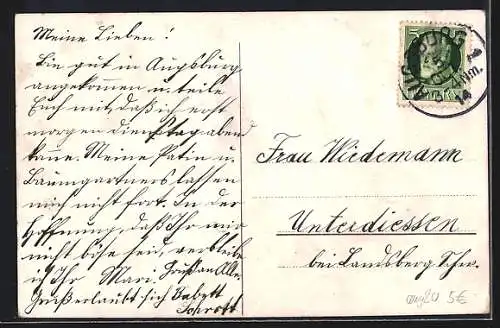 Meine Lieben!
Bin gut in Augsburg
angekommen u. teile
Euch mit, daß ich erst
morgen dienstag abend
kane. Meine Patin u.
Baumgartners lassen
mich nicht fort. In der
Hoffnung, daß Ihr mir
nicht böse seid, verbleibe
ich Ihr Mari. Gruß an Alle.
Gruß erlaubt sich Babett
Schrott
Frau Wiedemann
Unterdiessen
bei Landsberg
5€